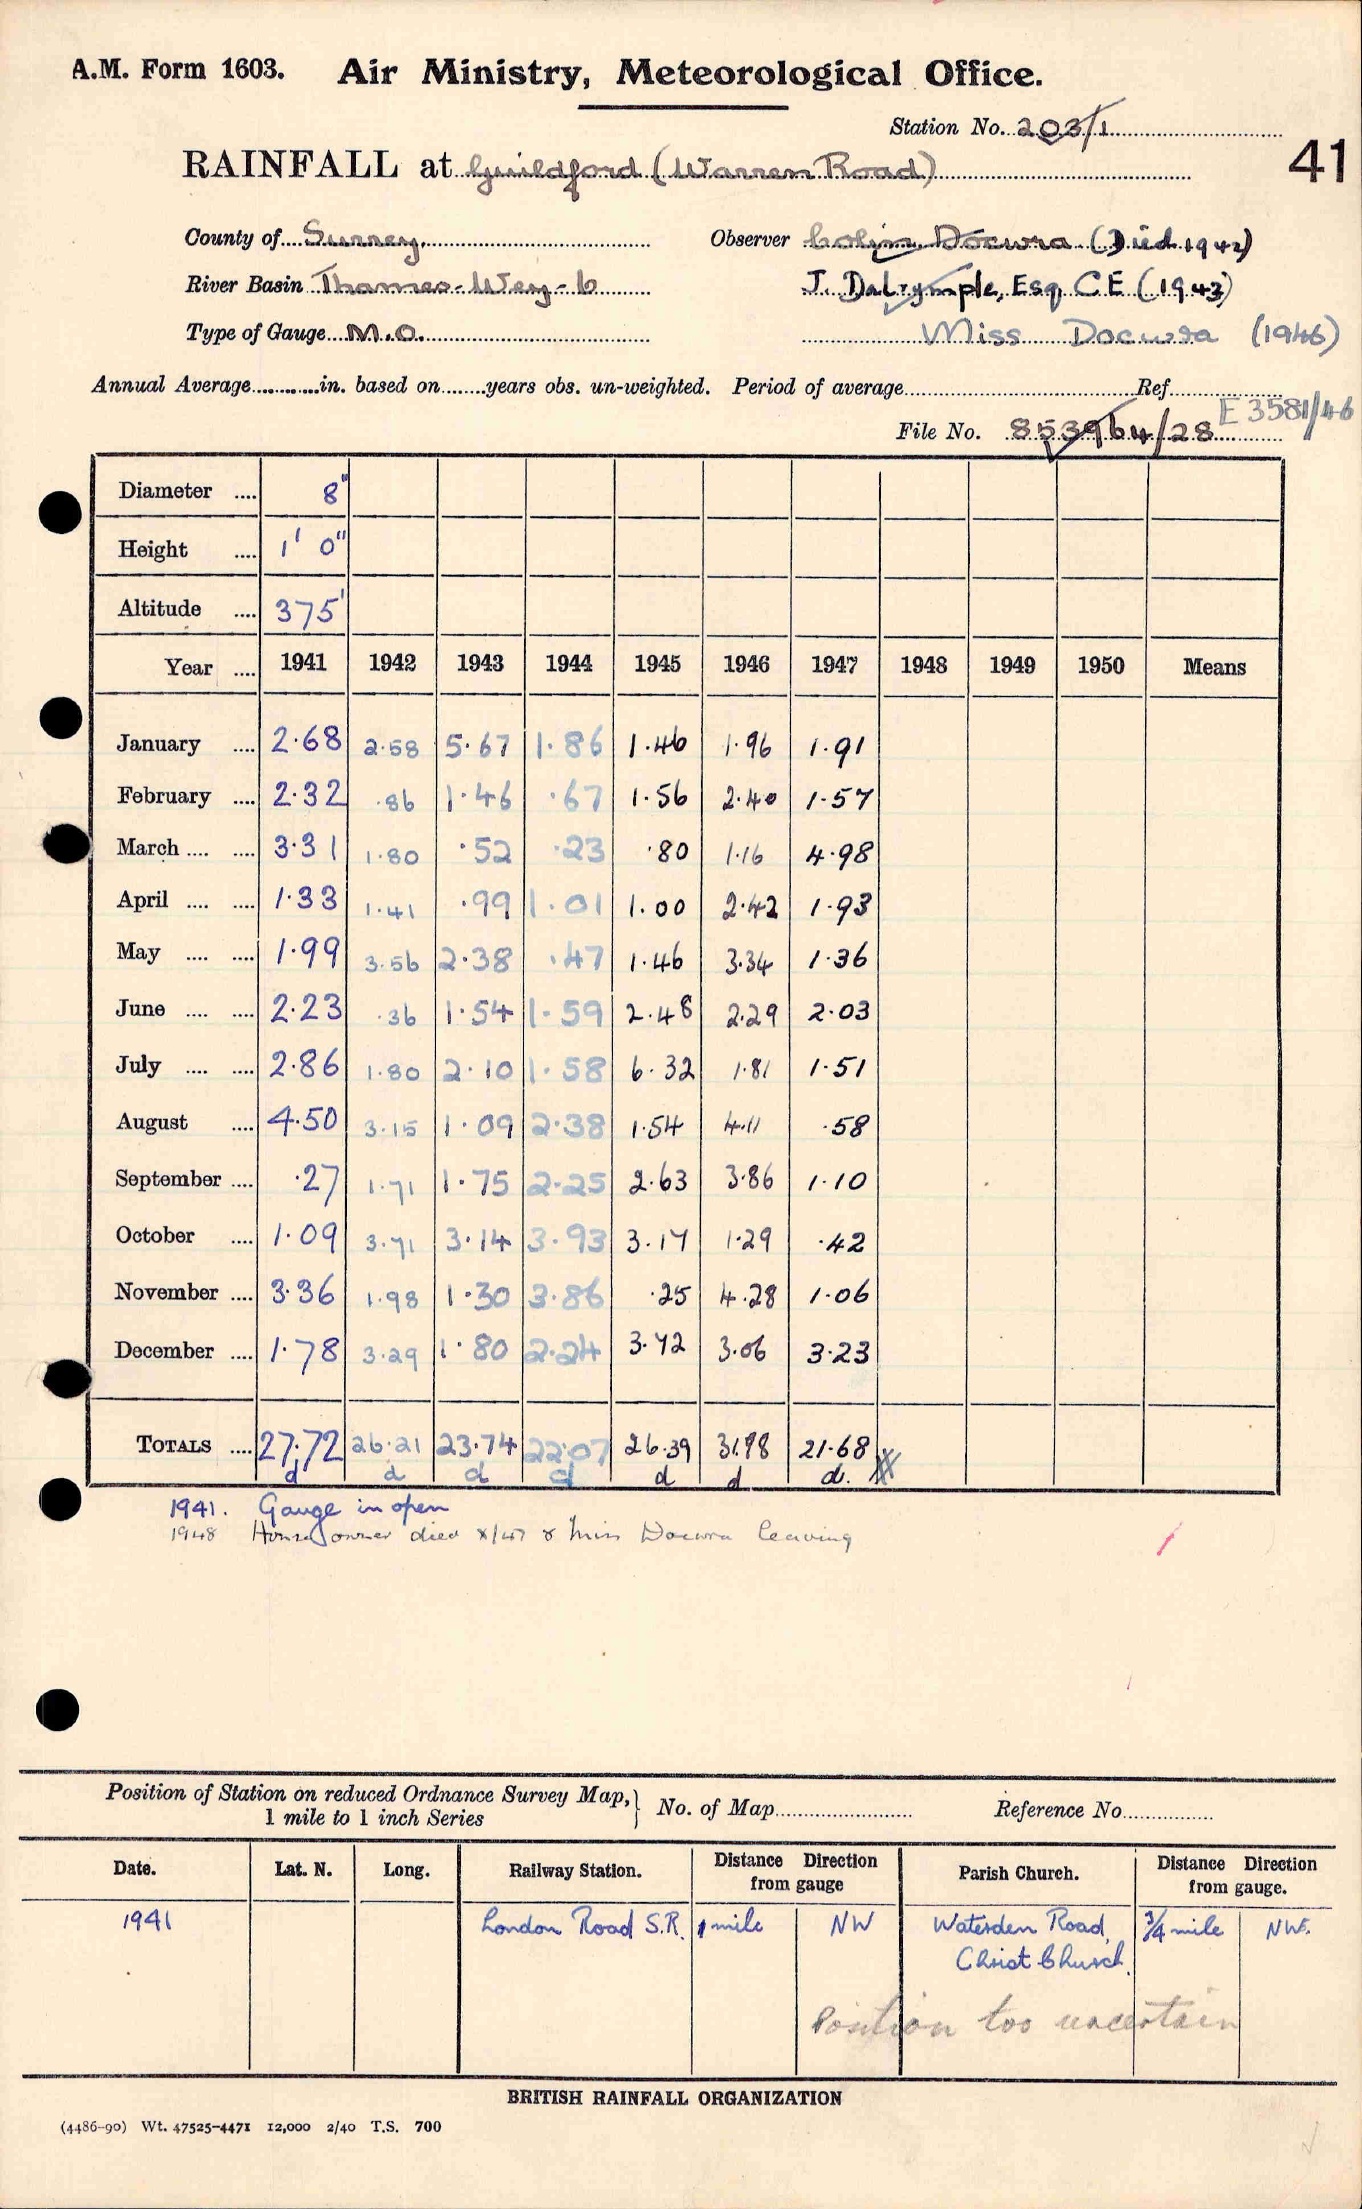 A.M. Form 1603. Air Ministry, Meteorological Office.
Station No. 203/1
41
RAINFALL at Guildford (Warren Road)
County of Surrey. Observer Colin Docwra (Died 1942)
River Basin Thames-Wey-b J. Dalrymple, Esq CE (1943)
Type of Gauge M.O. Miss Docwra (1946)
Annual Average in. based on years obs. un-weighted. Period of average Ref E 3581/46
File No. 853964/28
Diameter 8"
Height 1' 0"
Altitude 375'
Year 1941 1942 1943 1944 1945 1946 1947 1948 1949 1950 Means
January 2.68 2.58 5.67 1.86 1.46 1.96 1.91
February 2.32 .86 1.46 .67 1.56 2.40 1.57
March 3.31 1.80 .52 .23 .80 1.16 4.98
April 1.33 1.41 .99 1.01 1.00 2.42 1.93
May 1.99 3.56 2.38 .47 1.46 3.34 1.36
June 2.23 .36 1.54 1.59 2.48 2.29 2.03
July 2.86 1.80 2.10 1.58 6.32 1.81 1.51
August 4.50 3.15 1.09 2.38 1.54 4.11 .58
September .27 1.71 1.75 2.25 2.63 3.86 1.10
October 1.09 3.71 3.14 3.93 3.17 1.29 .42
November 3.36 1.98 1.30 3.86 .25 4.28 1.06
December 1.78 3.29 1.80 2.24 3.72 3.06 3.23
TOTALS 27.72 26.21 23.74 22.07 26.39 31.98 21.68
d d d d d d d.
1941. Gauge in open
1948 House owner died x/47 & Miss Docwra leaving
Position of Station on reduced Ordnance Survey Map, No. of Map Reference No
1 mile to 1 inch Series
Date. Lat. N. Long. Railway Station. Distance Direction from gauge Parish Church. Distance Direction from gauge.
1941 London Road S.R. 1 mile NW Waterden Road, 3/4 mile NW.
Christ Church.
Position too uncertain
BRITISH RAINFALL ORGANIZATION
(4486-90) Wt. 47525-4471 12,000 2/40 T.S. 700